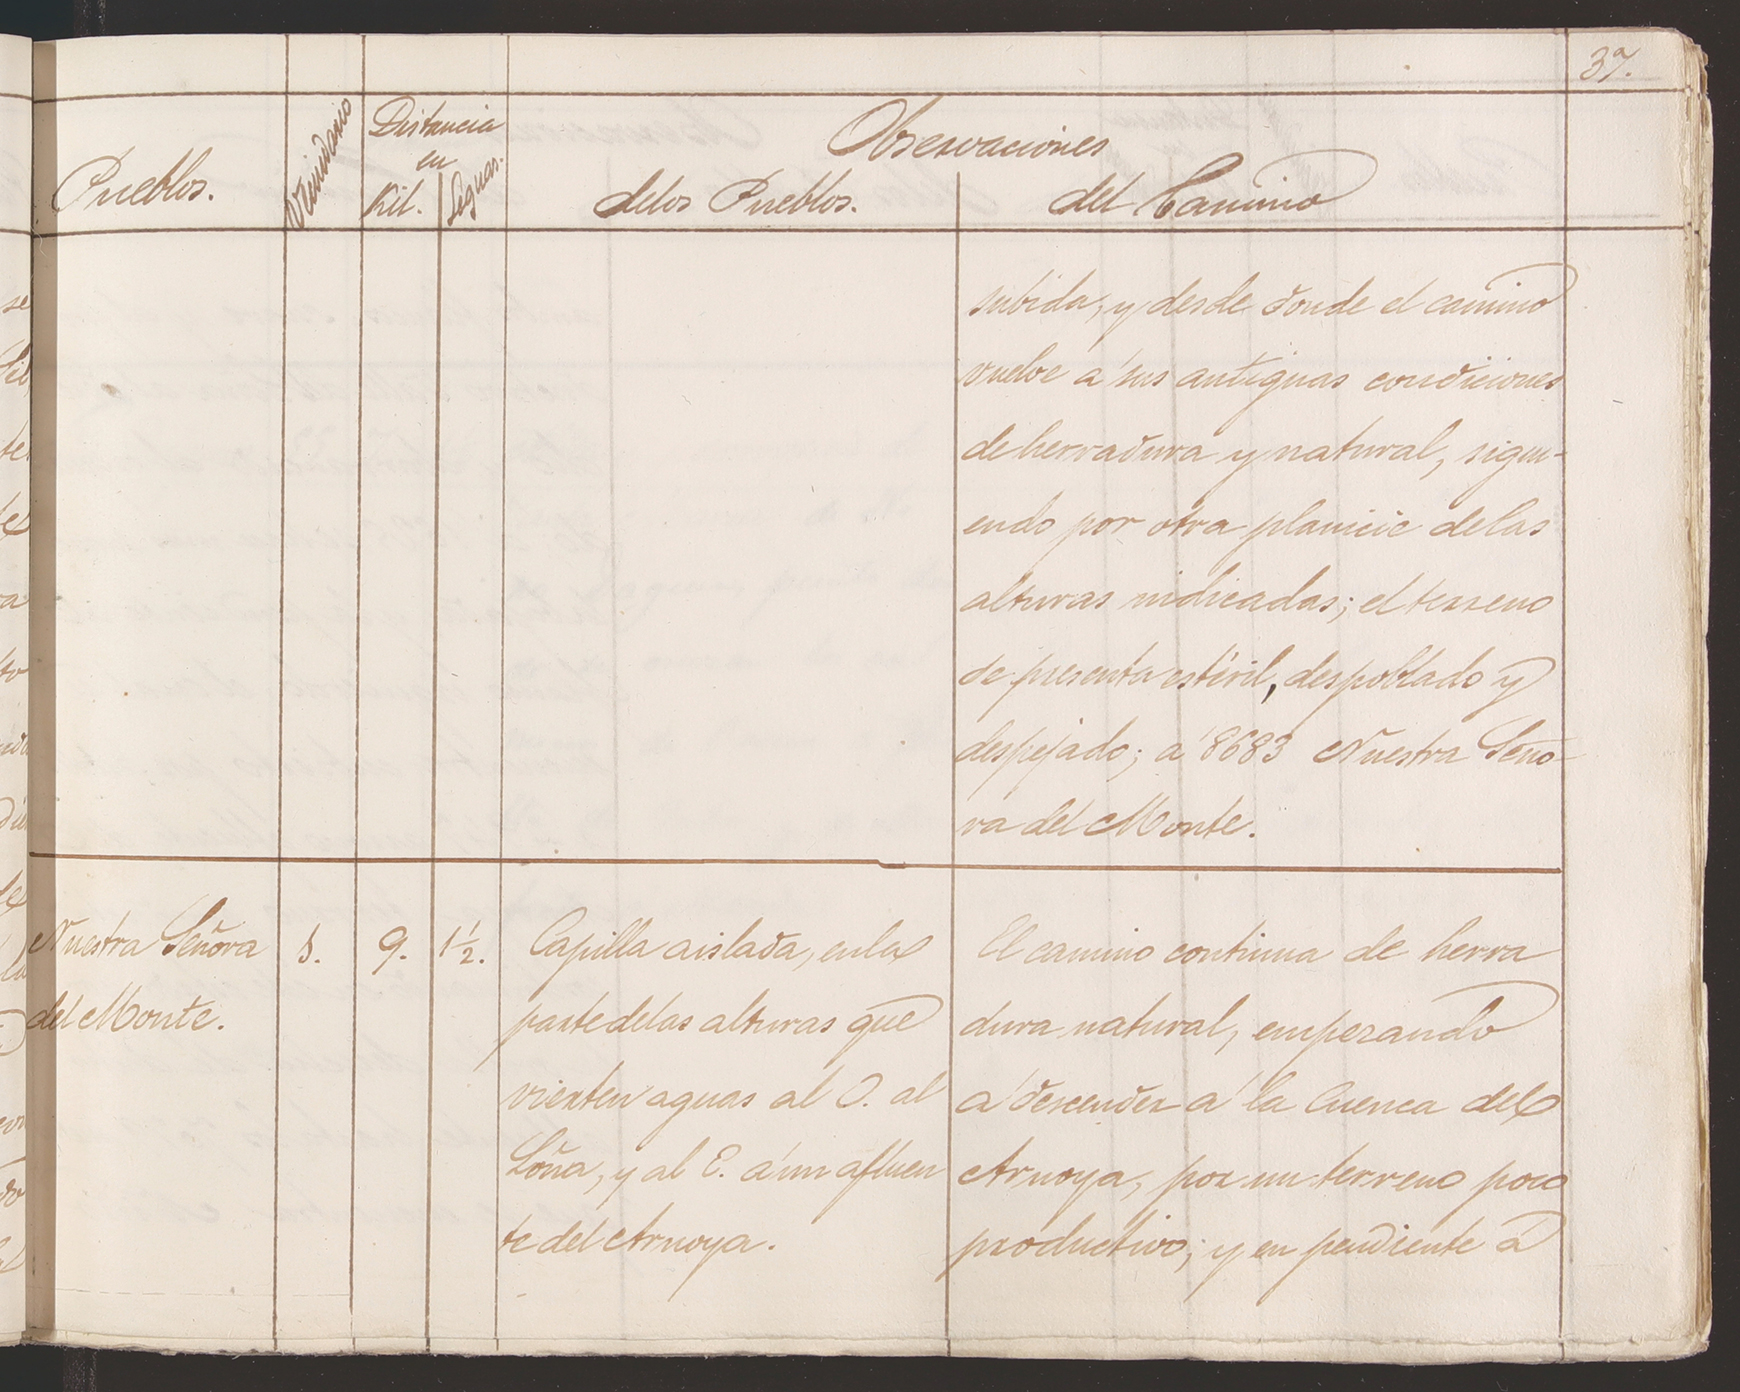 37.
Pueblos.
Vecindario
Distancia
en
Kil.
Leguas.
Observaciones
delos Pueblos.
del Camino
subida, y desde donde el camino
vuelve á sus antiguas condiciones
de herradura y natural, sigui-
endo por otra planicie delas
alturas indicadas; el terreno
se presenta estéril, despoblado y
despejado; á 8683 Nuestra Seño-
ra del Monte.
Nuestra Señora
del Monte.
9.
1½.
Capilla aislada, enla
parte delas alturas que
vierten aguas al O. al
Loña, y al E. á un afluen
te del Arnoya.
El camino continua de herra
dura natural, empezando
á descender á la Cuenca del
Arnoya, por un terreno poco
productivo; y en pendiente á